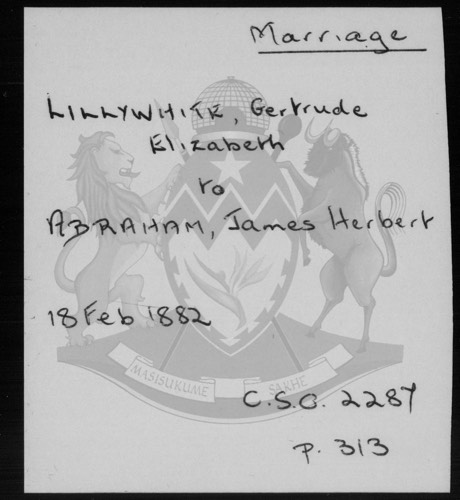 Marriage
LILLYWHITE, Gertrude
Elizabeth
to
ABRAHAM, James Herbert
18 Feb 1882
MASISUKUME SAKHE
C.S.O. 2287
p. 313